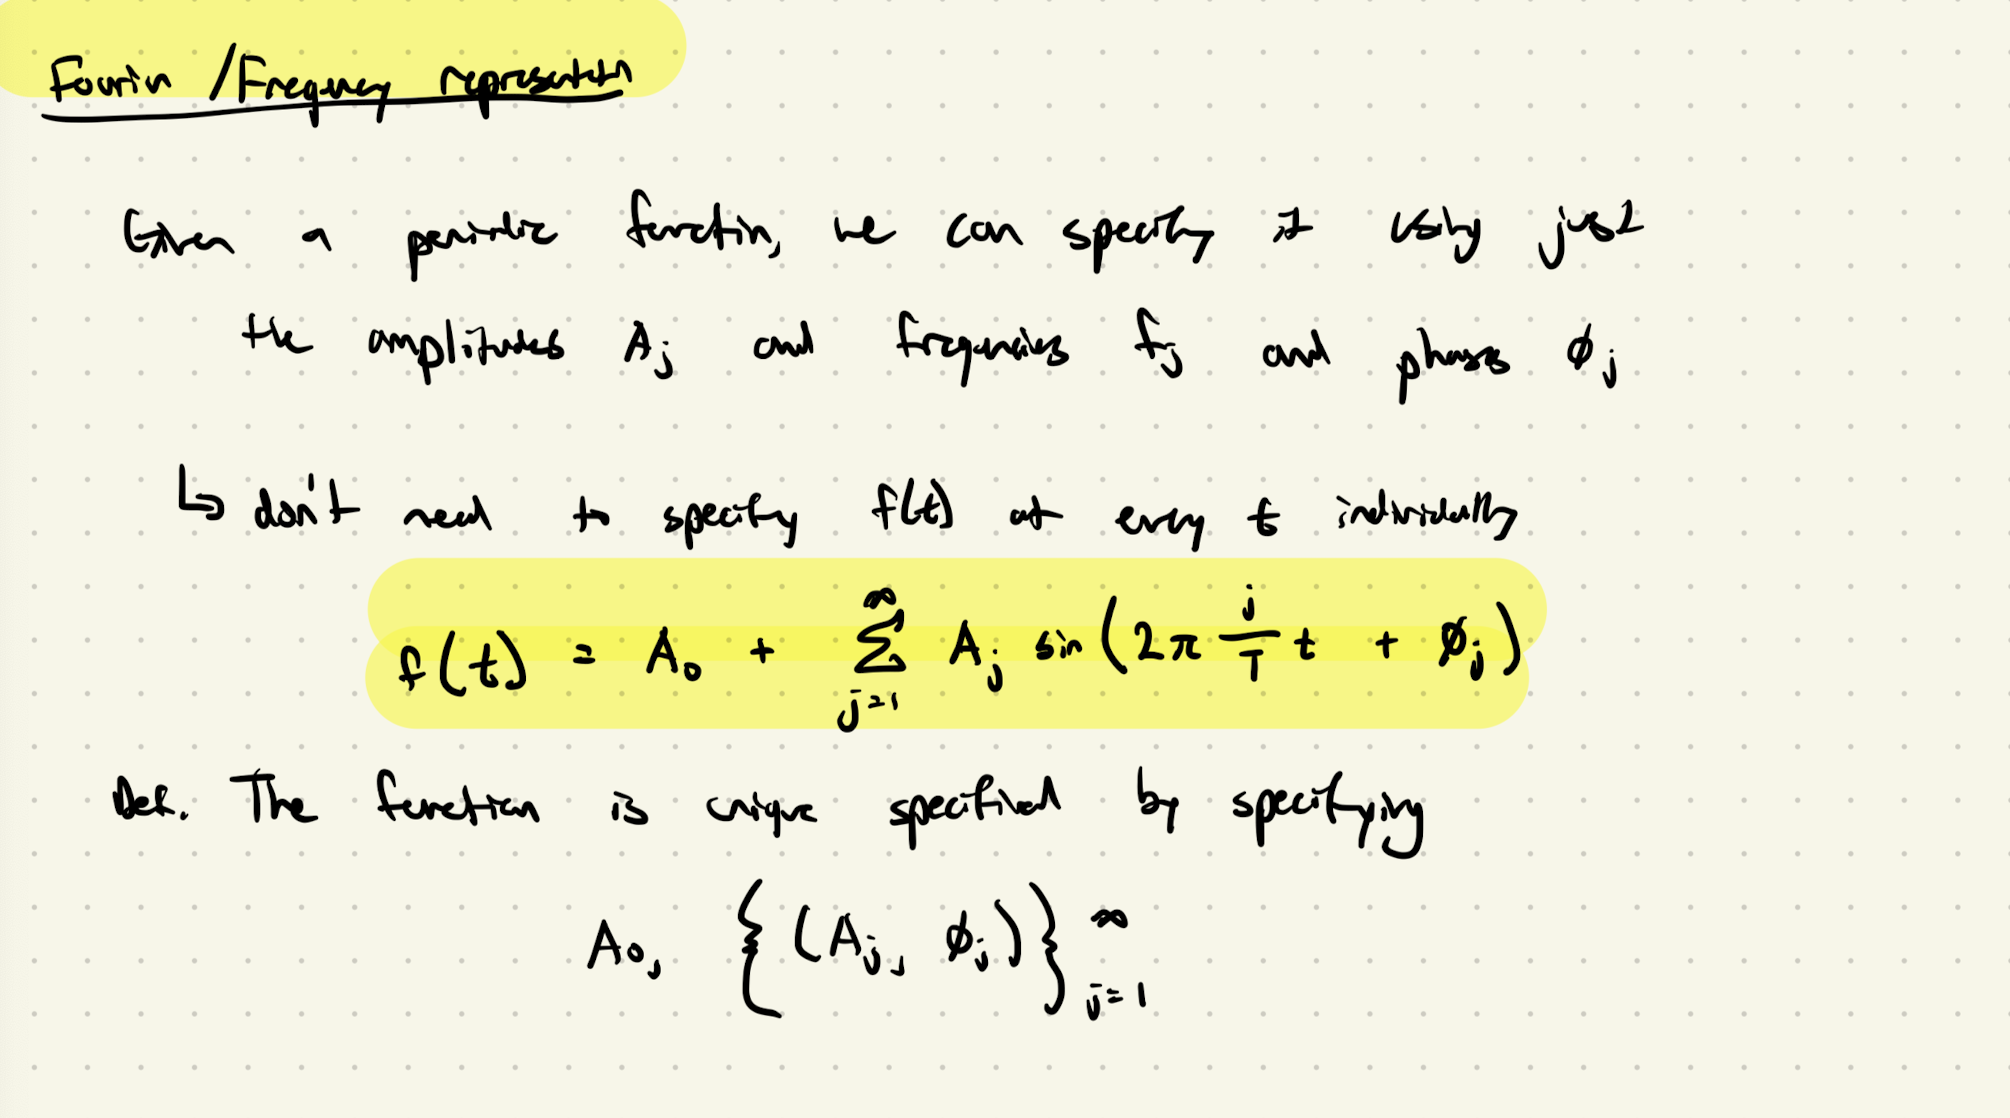 Fourier / Frequency representation
Given a periodic function, we can specify it using just
the amplitudes A_j and frequencies f_j and phases ϕ_j
↳ don't need to specify f(t) at every t individually
f(t) = A_0 + ∑_{j=1}^{∞} A_j sin(2π j/T t + ϕ_j)
Def. The function is unique specified by specifying
A_0, {(A_j, ϕ_j)}_{j=1}^{∞}